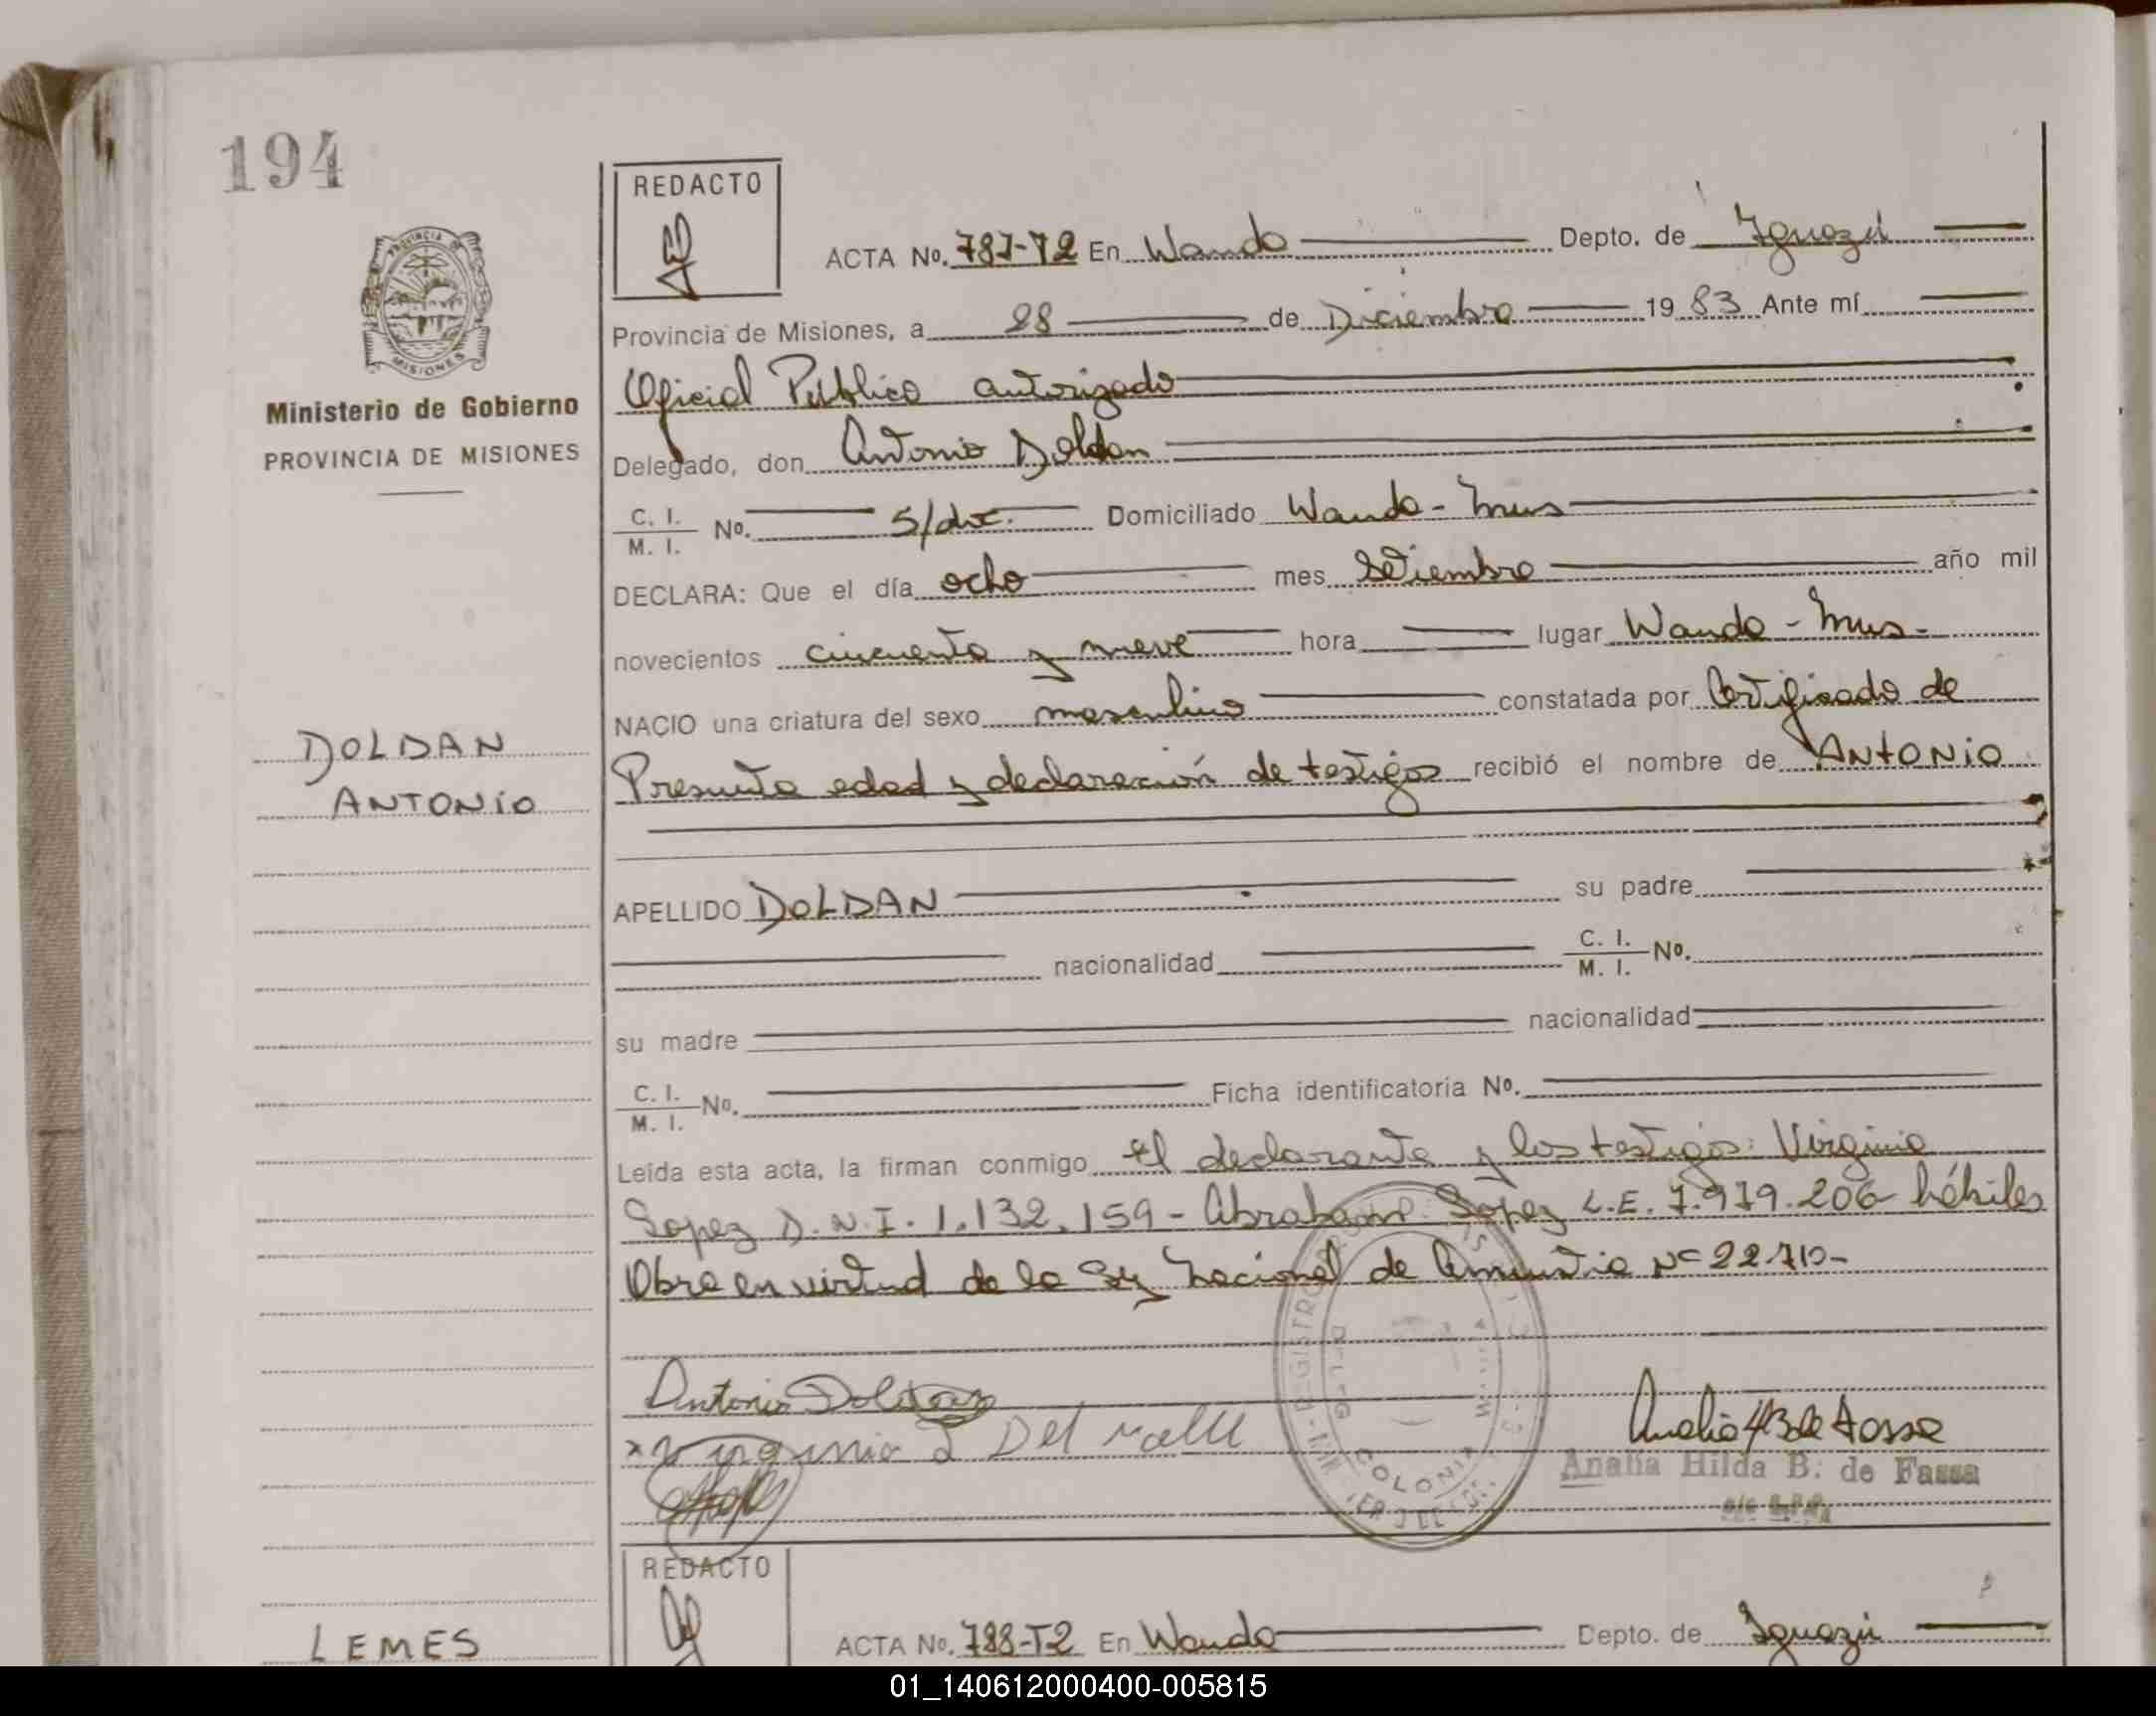 194
REDACTO
ACTA No. 787-T2 En Wanda Depto. de Iguazú
Provincia de Misiones, a 28 de Diciembre 1983 Ante mí
Oficial Público autorizado
Delegado, don Antonio Doldan
C. I.
M. I. No. s/doc. Domiciliado Wanda - Mnes
DECLARA: Que el día ocho mes Setiembre año mil
novecientos cincuenta y nueve hora lugar Wanda - Mnes -
NACIO una criatura del sexo masculino constatada por Certificado de
Presunta edad y declaración de testigos recibió el nombre de ANTONIO
APELLIDO DOLDAN su padre
nacionalidad C. I.
M. I. No.
su madre nacionalidad
C. I.
M. I. No. Ficha identificatoria No.
Leída esta acta, la firman conmigo el declarante y los testigos: Virginia
Lopez D.N.I. 1.132.159 - Abraham Lopez L.E. 7.979.206 hábiles
Obra en virtud de la Ley Nacional de Amnistia Nº 22.710-
Antonio Doldan
x Virginia L Del Valle
COLONIA
Analia H B de Fassa
Analia Hilda B. de Fassa
PROVINCIA DE
MISIONES
Ministerio de Gobierno
PROVINCIA DE MISIONES
DOLDAN
ANTONIO
REDACTO
LEMES
ACTA No. 788-T2 En Wanda Depto. de Iguazú
01_140612000400-005815